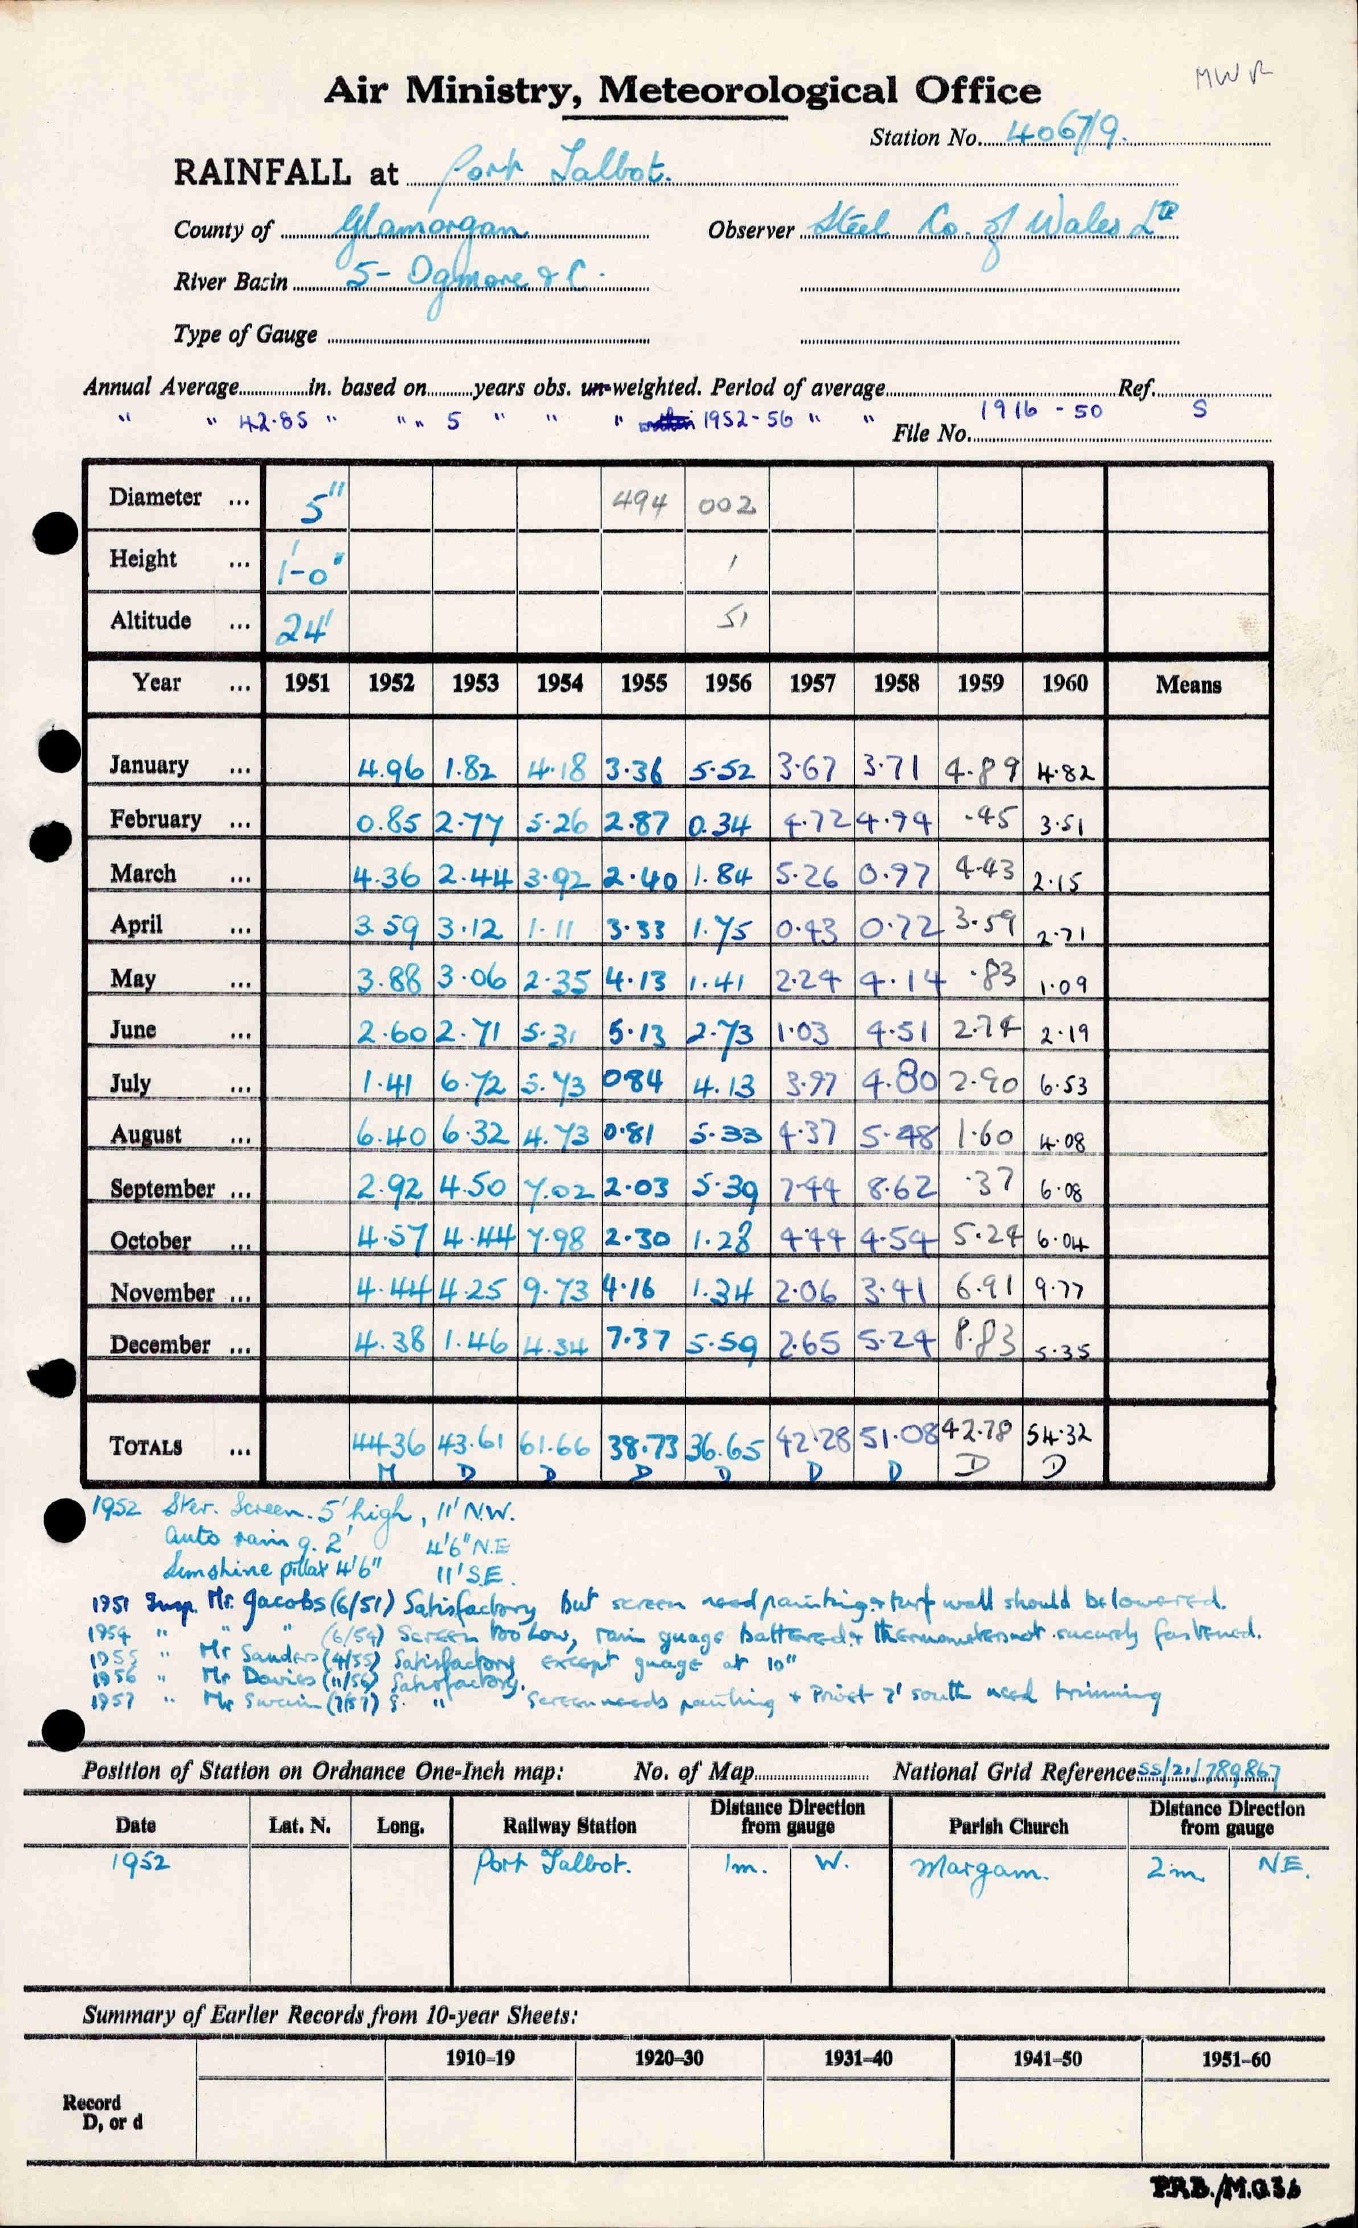 MWR
Air Ministry, Meteorological Office
Station No. 4067/9.
RAINFALL at Port Talbot.
County of Glamorgan Observer Steel Co. of Wales Ltd
River Basin 5- Ogmore & C.
Type of Gauge
Annual Average in. based on years obs. un-weighted. Period of average Ref.
" " 42.85 " " " 5 " " " 1952-56 " " 1916 - 50 S
File No.
Diameter ... 5" 494 002
Height ... 1'-0" 1
Altitude ... 24' 51
Year ... 1951 1952 1953 1954 1955 1956 1957 1958 1959 1960 Means
January ... 4.96 1.82 4.18 3.36 5.52 3.67 3.71 4.89 4.82
February ... 0.85 2.77 5.26 2.87 0.34 4.72 4.94 .45 3.51
March ... 4.36 2.44 3.92 2.40 1.84 5.26 0.97 4.43 2.15
April ... 3.59 3.12 1.11 3.33 1.75 0.43 0.72 3.59 2.71
May ... 3.88 3.06 2.35 4.13 1.41 2.24 4.14 .83 1.09
June ... 2.60 2.71 5.31 5.13 2.73 1.03 4.51 2.74 2.19
July ... 1.41 6.72 5.73 0.84 4.13 3.97 4.80 2.90 6.53
August ... 6.40 6.32 4.73 0.81 5.33 4.37 5.48 1.60 4.08
September ... 2.92 4.50 7.02 2.03 5.39 7.44 8.62 .37 6.08
October ... 4.57 4.44 7.98 2.30 1.28 4.44 4.54 5.24 6.04
November ... 4.44 4.25 9.73 4.16 1.34 2.06 3.41 6.91 9.77
December ... 4.38 1.46 4.34 7.37 5.59 2.65 5.24 8.83 5.35
TOTALS ... 44.36 43.61 61.66 38.73 36.65 42.28 51.08 42.78 54.32
M D D D D D D D D
1952 Stev. Screen. 5' high, 11' N.W.
Auto rain g. 2' 4'6" N.E
Sunshine pillar 4'6" 11' S.E.
1951 Insp. Mr. Jacobs (6/51) Satisfactory but screen need painting & turf wall should be lowered.
1954 " " " (6/54) Screen too low, rain guage battered & thermometers not securely fastened.
1955 " Mr Sanders (4/55) Satisfactory except guage at 10"
1956 " Mr Davies (11/56) Satisfactory.
1957 " Mr Swain (7/57) S. " Screen needs painting & Privet 7' south need trimming
Position of Station on Ordnance One-Inch map: No. of Map National Grid Reference SS/21/789867
Date Lat. N. Long. Railway Station Distance Direction from gauge Parish Church Distance Direction from gauge
1952 Port Talbot. 1m. W. Margam. 2m. N.E.
Summary of Earlier Records from 10-year Sheets:
1910–19 1920–30 1931–40 1941–50 1951–60
Record
D, or d
P.R.B./M.O.36